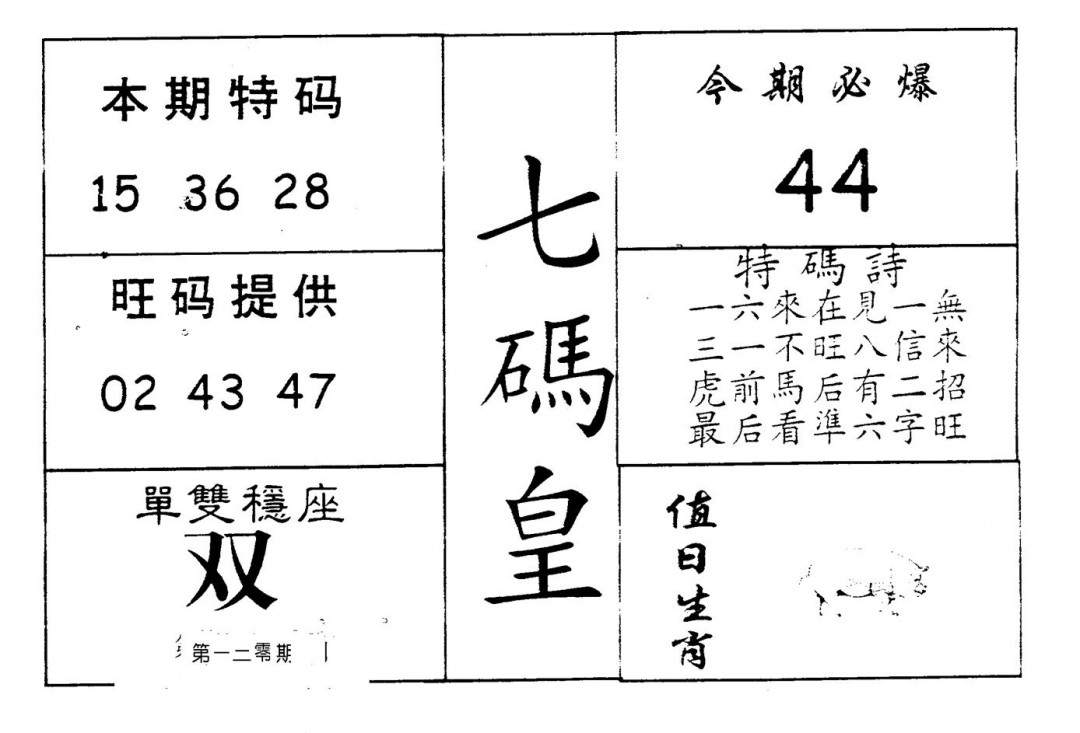 本期特码
15 36 28
旺码提供
02 43 47
單雙穩座
双
第一二零期
七碼皇
今期必爆
44
特碼詩
一六來在見一無
三一不旺八信來
虎前馬后有二招
最后看準六字旺
值日生肖